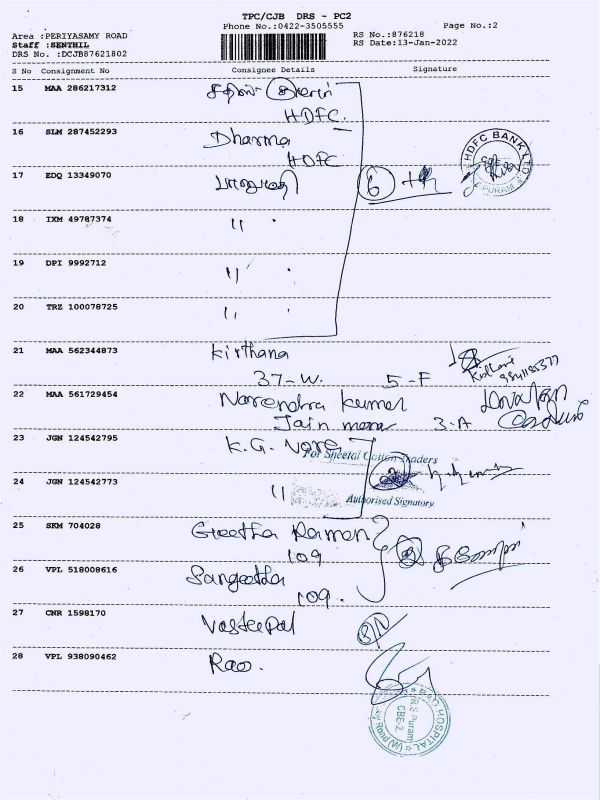 TPC/CJB DRS - PC2
Phone No.:0422-3505555
Page No.:2
Area :PERIYASAMY ROAD
RS No.:876218
Staff :SENTHIL
RS Date:13-Jan-2022
DRS No. :DCJB87621802
S No Consignment No Consignee Details Signature
15 MAA 286217312
HDFC.
16 SLM 287452293 Dharma
HDFC
HDFC BANK LTD
PURAM
17 EDQ 13349070
6
18 IXM 49787374 "
19 DPI 9992712 "
20 TRZ 100078725 "
21 MAA 562344873 Kirthana
37-W. 5-F
22 MAA 561729454 Narendra Kumar
Jain 3.A
23 JGN 124542795 K.G.
For Sheetal Cotton Traders
24 JGN 124542773 "
Authorised Signatory
25 SKM 704028 Geetha Raman
109
26 VPL 518008616 Sangeetha
109.
27 CNR 1598170
28 VPL 938090462 Rao.
RAO HOSPITAL
R.S Puram
CBE-2